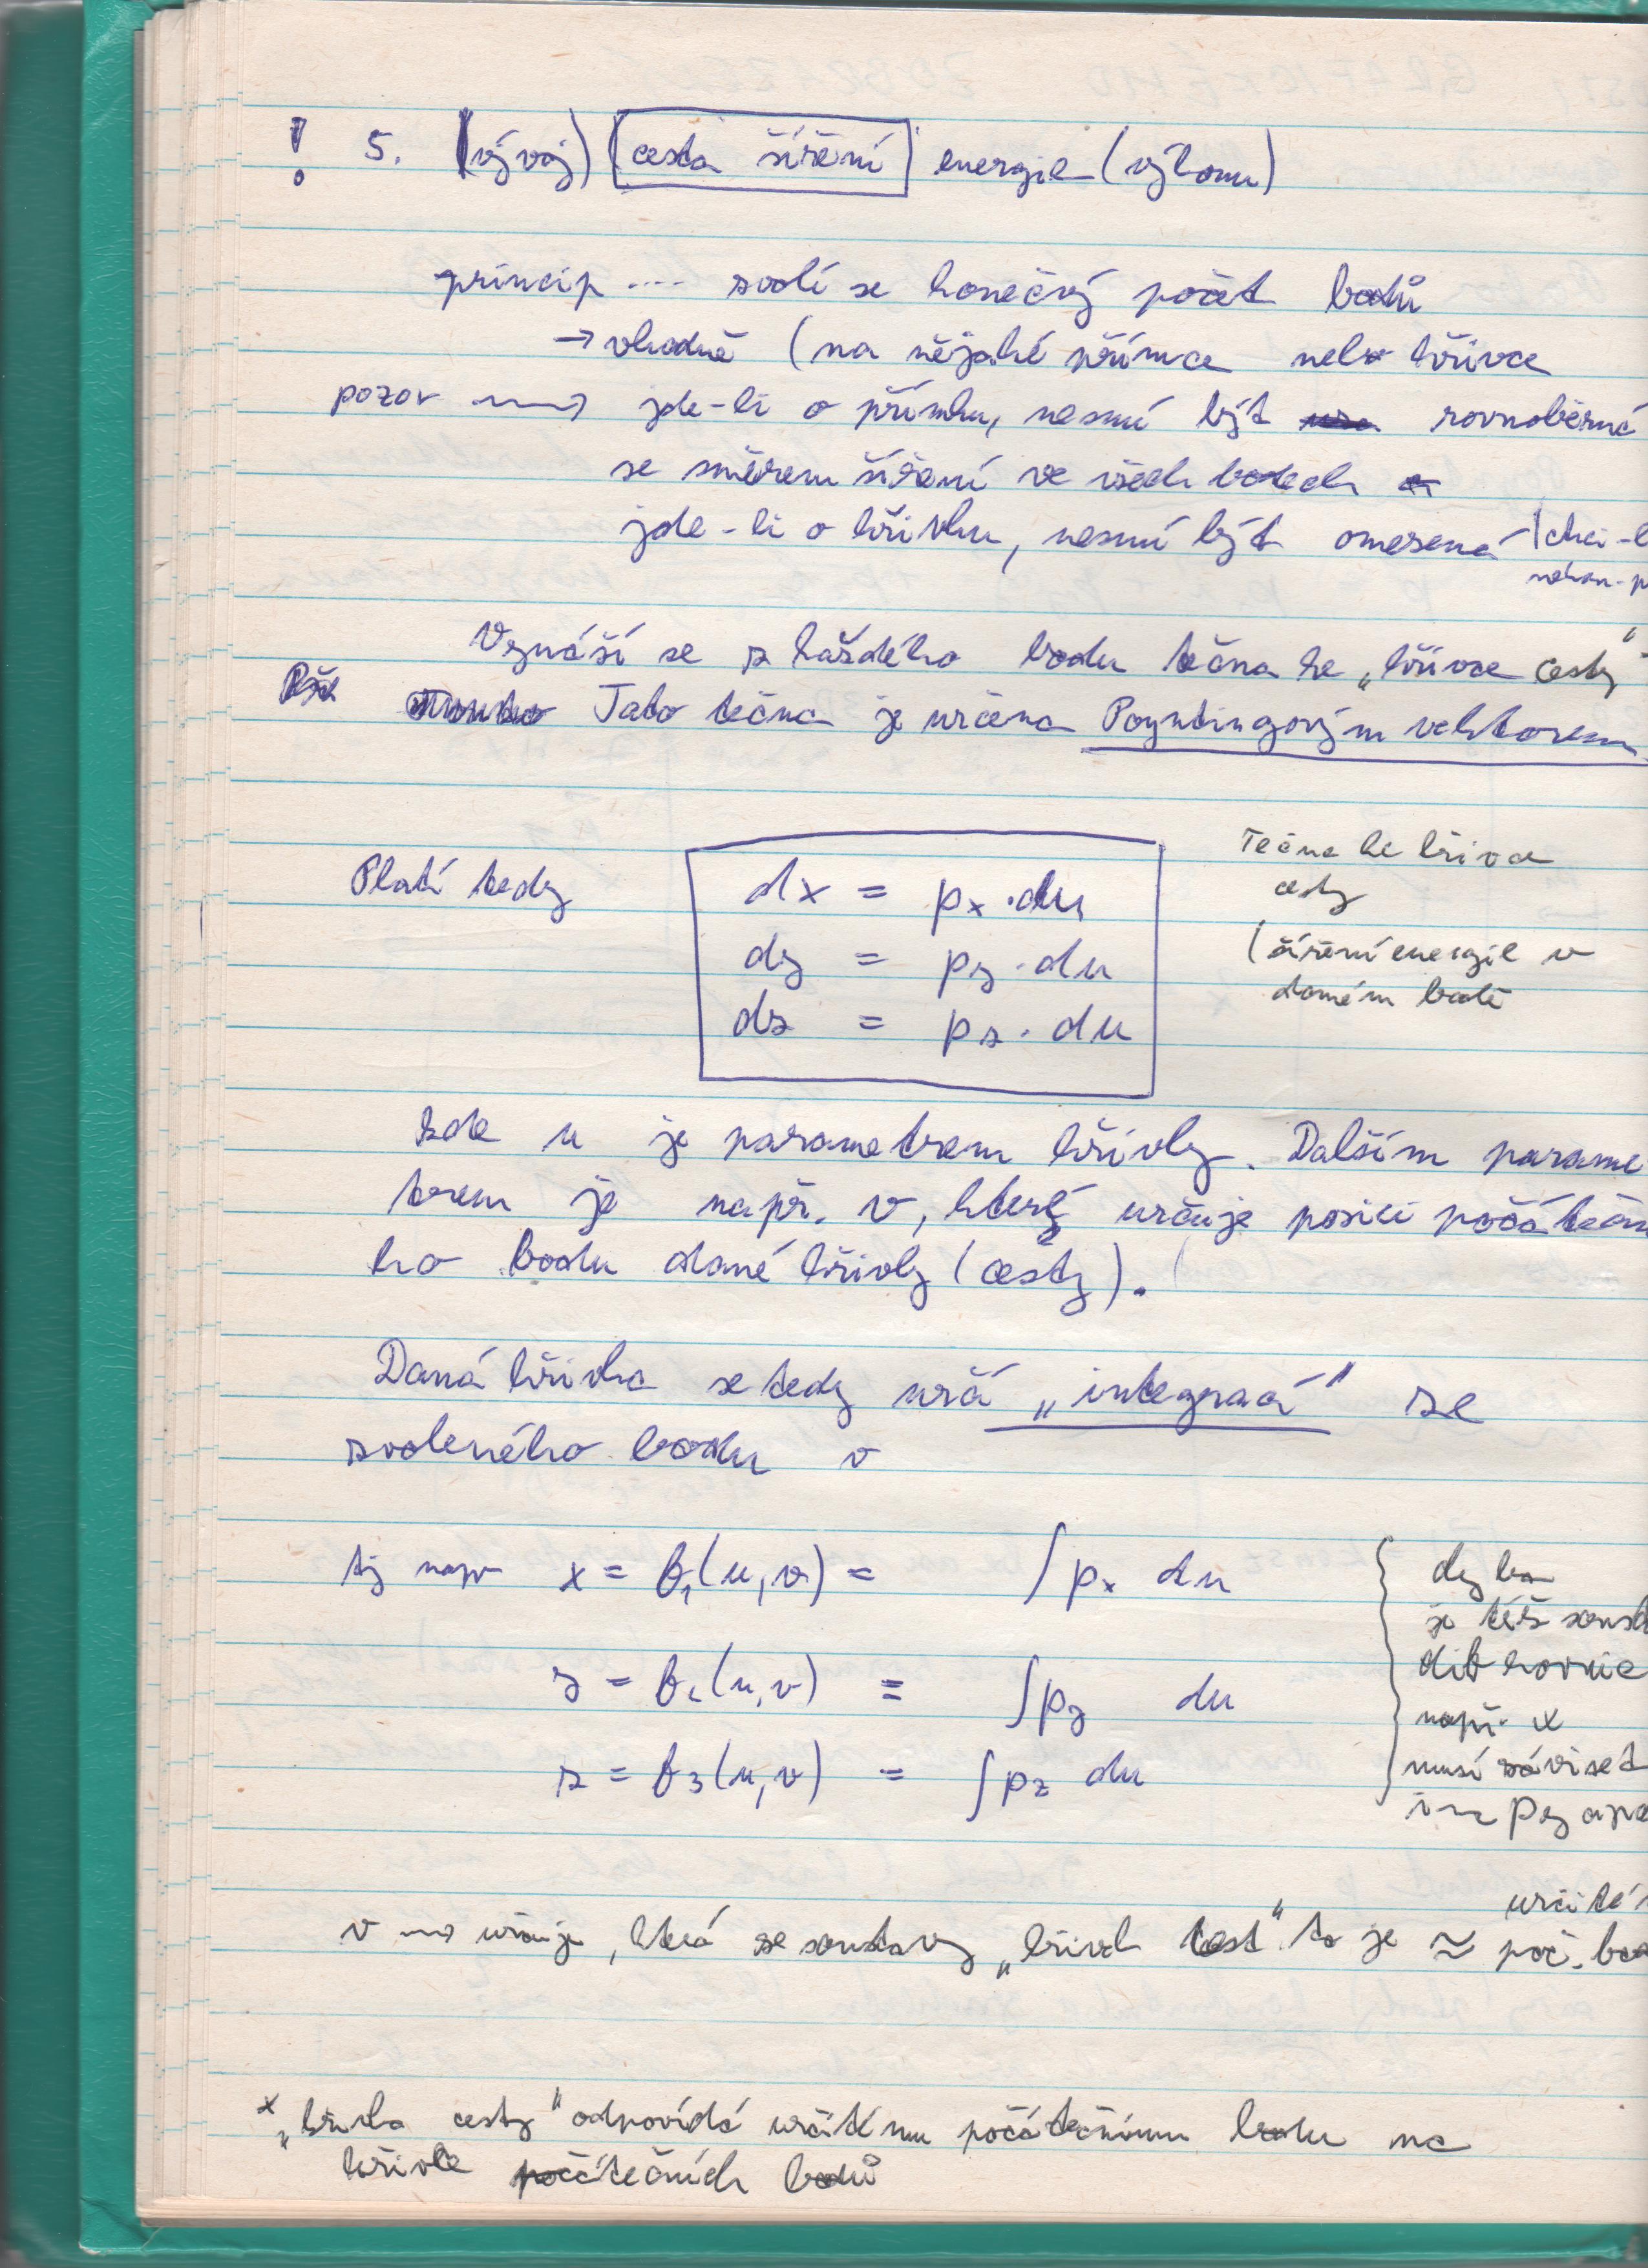 ! 5. (vývoj) cesta šíření energie (výkonu)
princip .... zvolí se konečný počet bodů
→ vhodně (na nějaké přímce nebo křivce
pozor → jde-li o přímku, nesmí být rovnoběrná
se směrem šíření ve všech bodech
jde-li o křivku, nesmí být omezená
Vznáší se z každého bodu tečna ke „křivce cesty"
Tato tečna je určena Poyntingovým vektorem.
Platí tedy
dx = px · du
dy = py · du
dz = pz · du
Tečna ke křivce
cesty
(šíření energie v
daném bodě
kde u je parametrem křivky. Dalším parame
trem je např. v, který určuje posici počáteční
ho bodu dané křivky (cesty).
Daná křivka se tedy určí „integrací" ze
zvoleného bodu v
tj např x = f1(u,v) = ∫ px du
y = f2(u,v) = ∫ py du
z = f3(u,v) = ∫ pz du
je též soust
dif rovnic
např. x
musí záviset
v → určuje, která ze soustavy „křivek cest" to je ≈ poč. bo
určité
x „křivka cesty" odpovídá určitému počátečnímu bodu na
křivce počátečních bodů